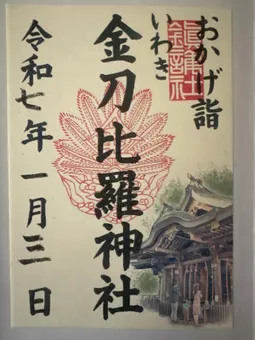 おかげ詣
いわき
金刀比羅神社
令和七年一月三日